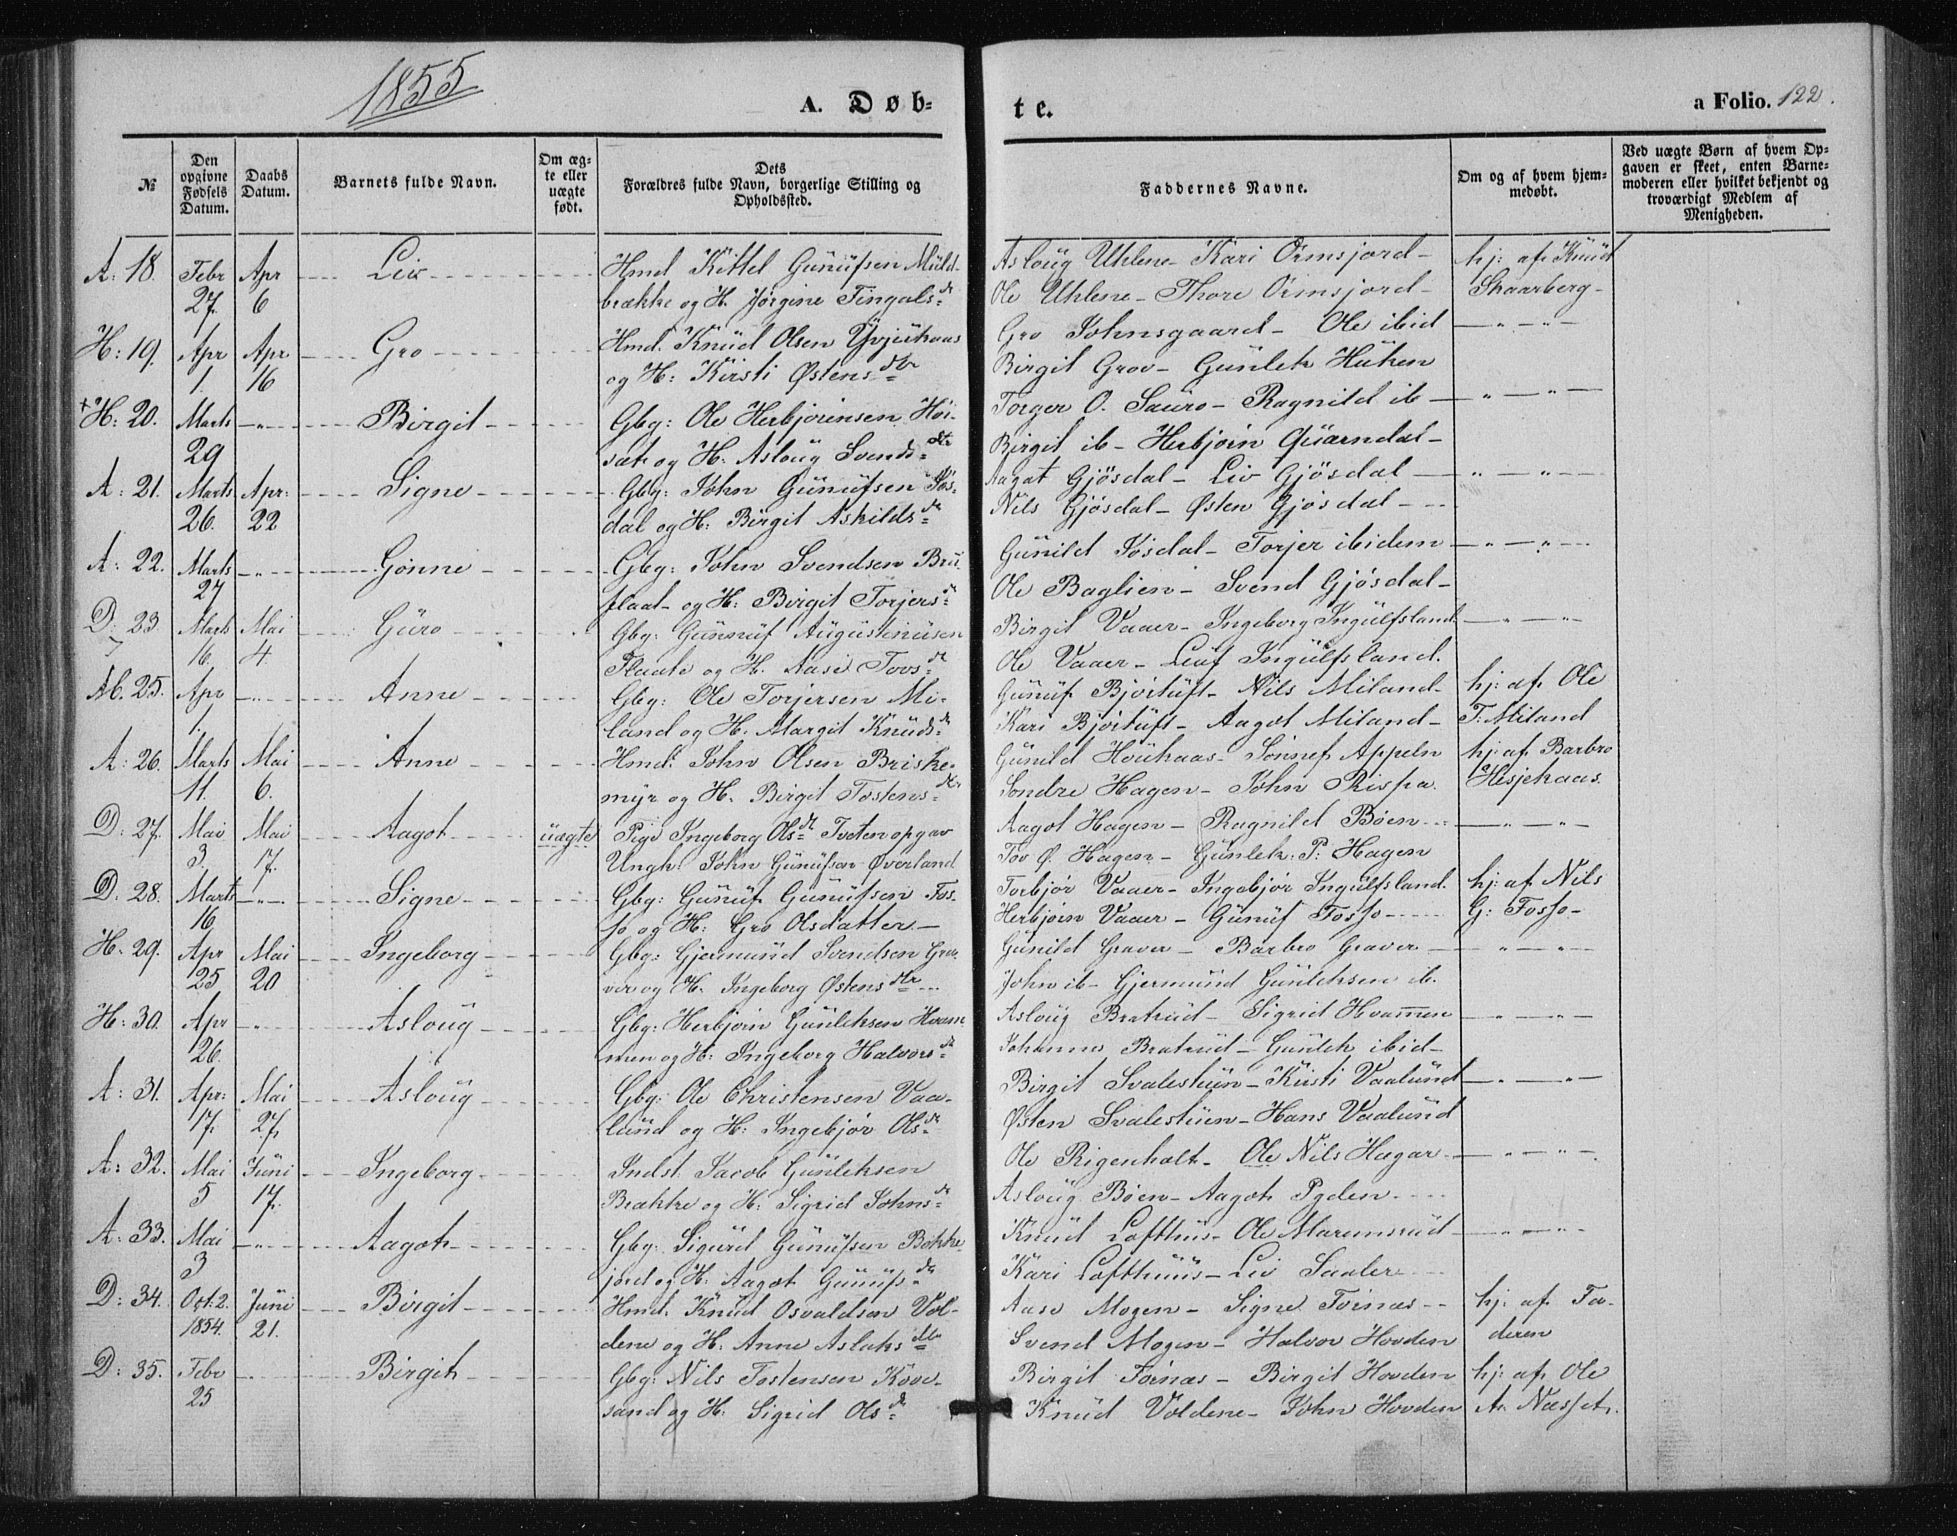 1855
A. Døb-
te.
a Folio. 122.
№
Den opgivne Fødsels Datum.
Daabs Datum.
Barnets fulde Navn.
Om ægte eller uægte født.
Dets Forældres fulde Navn, borgerlige Stilling og Opholdssted.
Faddernes Navne.
Om og af hvem hjemmedøbt.
Ved uægte Børn af hvem Opgaven er skeet, enten Barnemoderen eller hvilket bekjendt og troværdigt Medlem af Menigheden.
A: 18. Febr 27. Apr 6 Liv
Hmd Kittel Gunufsen Müld-
brække og H. Jørgine Tingals dr
Asloug Uhlene - Kari Ormsjord -
Ole Uhlene - Thore Ormsjord -
hj: af Knud
Skaarberg -
H: 19. Apr 1. Apr 16 Gro
Hmd. Knud Olsen
og H: Kirsti Østens dtr
Gro Johnsgaard - Ole ibid - " -
Birgit Grov - Gunlek Huken
+ H: 20. Marts 29 - " - Birgit
Gbg: Ole Herbjørnsen Høi-
sæt og H. Asloug Svends dtr
Torger O. Sauro - Ragnild ib - " -
Birgit ib - Herbjørn Quarndal -
A: 21. Marts 26. Apr: 22 Signe
Gbg: John Gunufsen Jøs-
dal og H: Birgit Askilds dr
Aagot Gjøsdal - Liv Gjøsdal - " -
Nils Gjøsdal - Østen Gjøsdal -
A: 22. Marts 27 - " - Gønne
Gbg: John Svendsen Bru-
flaat - og H: Birgit Torjers dr
Gunild Jøsdal - Torjer ibidem - " -
Ole Baglien - Svend Gjøsdal -
D: 23 Marts 16. Mai 4. Guro
Gbg: Gunnuf Augustinusen
Flaate og H. Aase Tovs dr
Birgit Vaaer - Ingeborg Ingulfsland - " -
Ole Vaaer - Leif Ingulfsland.
Ab. 25. Apr 1. - " - Anne
Gbg: Ole Torjersen Mi-
land og H. Margit Knuds dr
Gunuf Bjoituft - Nils Miland -
Kari Bjoituft - Aagot Miland -
hj: af Ole
T: Miland
A: 26. Marts 11. Mai 6. Anne
Hmd: John Olsen Briske-
myr og H. Birgit Tostens dtr
Gunild Houkaas - Sønnef Appeln
Sondre Hagen - John Rispa.
hj: af Barbro
Hesjekaas.
D: 27. Mai 3. Mai 17. Aagot uægte
Pige Ingeborg Ols dr Tveten opgav
Ungk. John Gunufsen Øverland
Aagot Hagen - Ragnild Bøen - " -
Tov Ø. Hagen - Gunlek P: Hagen
D: 28. Marts 16 - " - Signe
Gbg: Gunuf Gunufsen Fos-
so og H: Gro Olsdatter -
Torbjør Vaaer - Ingebjør Ingulfsland.
Herbjørn Vaaer - Gunuf Fosso -
hj: af Nils
G: Fosso -
H: 29. Apr 25 Mai 20 Ingeborg
Gbg: Gjermund Svendsen Gra-
ver og H. Ingeborg Østens dtr
Gunild Graver - Barbro Graver - " -
John ib - Gjermund Gunleksen ib.
H: 30. Apr 26. - " - Asloug
Gbg: Herbjørn Gunleksen Hvam-
men og H: Ingeborg Halvors dr
Asloug Bratrud - Sigrid Hvammen - " -
Johanne Bratrud - Gunlek ibid -
A: 31. Apr: 17. Mai 27. Asloug
Gbg: Ole Christensen Vaa-
lund og H: Ingebjør Ols dr
Birgit Svalestuen - Kirsti Vaalund - " -
Østen Svalestuen - Hans Vaalund
A: 32. Mai 5 Juni 17. Ingeborg
Indst Jacob Gunleksen
Brække og H: Sigrid Johns dr
Ole Rigenholt - Ole Nils Hagar - " -
Asloug Bøen - Aagot Pgden
A: 33. Mai 3 - " - Aagot
Gbg: Sigurd Gunufsen Bøkke-
jord og H: Aagot Gunufs dr
Knud Lofthus - Ole Maremsrud - " -
Kari Lofthuus - Liv Saaler
D: 34. Oct. 2. 1854. Juni 21. Birgit
Hmd. Knud Osvaldsen Vol-
dene og H: Anne Aslaks dtr
Aase Mogen - Signe Toinæs -
Svend Mogen - Halvor Hovden
hj: af Fa-
deren
D: 35. Febr 25 - " - Birgit
Gbg: Nils Tostensen Kove-
sand og H: Sigrid Ols dr
Birgit Foinæs - Birgit Hovden
Knud Voldene - John Hovden
hj: af Ole
A. Næsset.